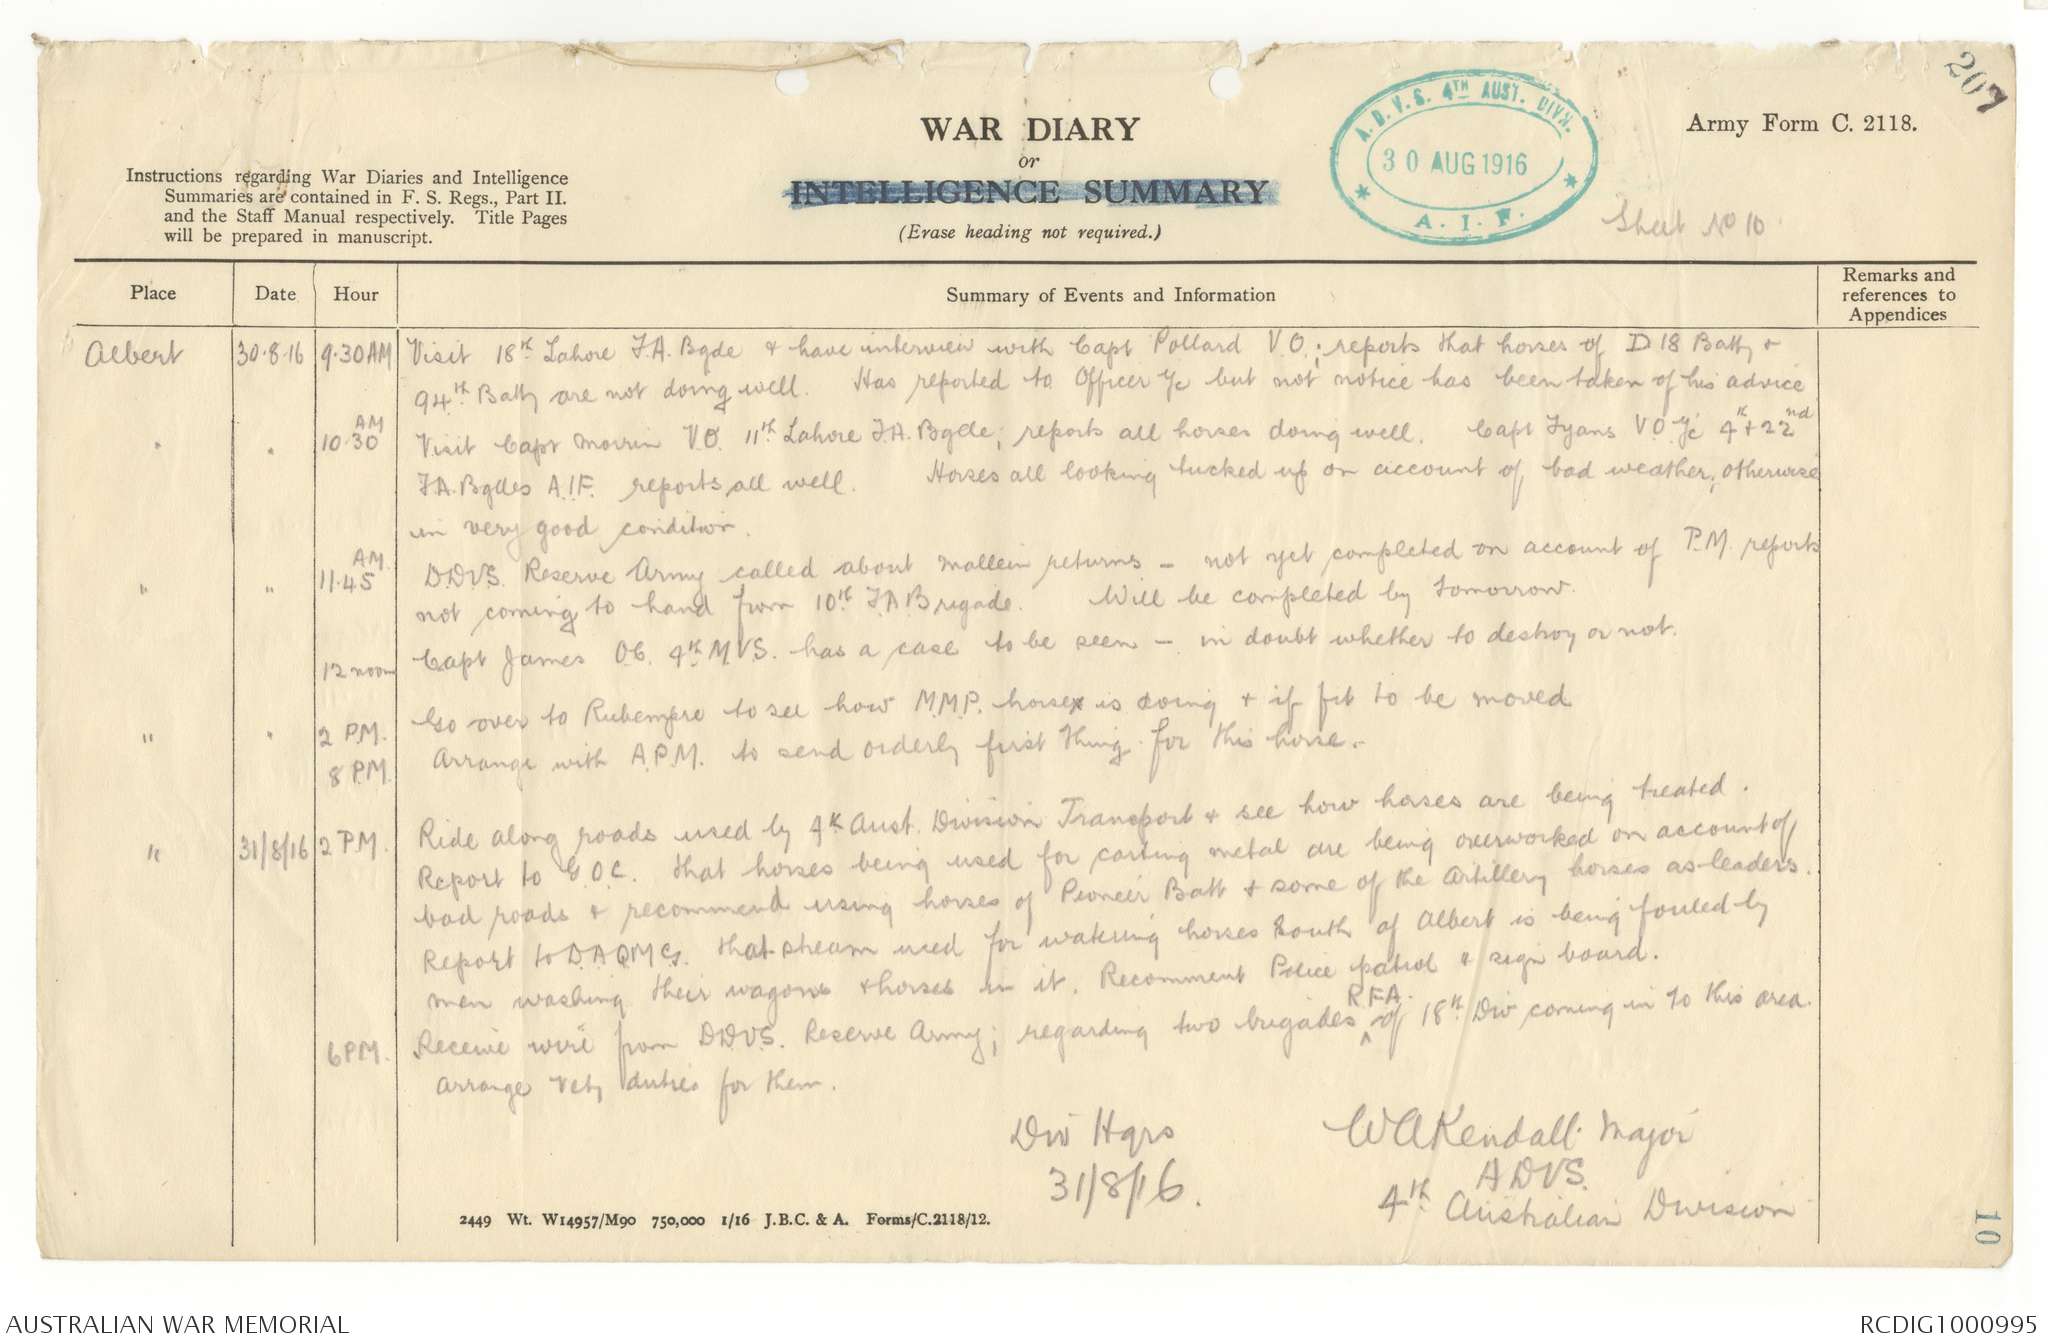 207
WAR DIARY
or
INTELLIGENCE SUMMARY
(Erase heading not required.)
Army Form C. 2118.
Instructions regarding War Diaries and Intelligence
Summaries are contained in F. S. Regs., Part II.
and the Staff Manual respectively. Title Pages
will be prepared in manuscript.
A.D.V.S. 4TH AUST. DIVN.
30 AUG 1916
* A. I. F. *
Sheet No 10
Place Date Hour Summary of Events and Information Remarks and
references to
Appendices
Albert 30.8.16 9.30AM Visit 18th Lahore F.A. Bgde & have interview with Capt Pollard V.O.; reports that horses of D 18 Batty &
94th Batty are not doing well. Has reported to Officer I/c but not notice has been taken of his advice
" " 10.30 AM Visit Capt Morrin V.O. 11th Lahore F.A. Bgde; reports all horses doing well. Capt Tyans V.O. I/c 4th & 22nd
F.A. Bgdes A.I.F. reports all well. Horses all looking tucked up on account of bad weather; otherwise
in very good condition.
" " 11.45 AM. D.D.V.S. Reserve Army called about mallein returns - not yet completed on account of P.M. reports
not coming to hand from 10th F.A Brigade. Will be completed by tomorrow.
12 noon Capt James O.C. 4th M.V.S. has a case to be seen - in doubt whether to destroy or not.
" " 2 P.M. Go over to Rubempre to see how M.M.P. horse is doing & if fit to be moved
8 P.M. Arrange with A.P.M. to send orderly first thing for this horse.-
" 31/8/16 2 P.M. Ride along roads used by 4th Aust. Division Transport & see how horses are being treated.
Report to G.O.C. that horses being used for carting metal are being overworked on account of
bad roads & recommend using horses of Pioneer Batt & some of the Artillery horses as leaders.
Report to D.A.Q.M.G. that stream used for watering horses South of Albert is being fouled by
men washing their wagons & horses in it. Recomment Police patrol & sign board.
6 P.M. Receive wire from D.D.V.S. Reserve Army; regarding two brigades R.F.A. of 18th Div coming in to this area.
arrange Vety duties for them.
Div Hqrs
31/8/16.
WAKendall. Major
A D V S.
4th Australian Division
2449 Wt. W14957/M90 750,000 1/16 J.B.C. & A. Forms/C.2118/12.
10
AUSTRALIAN WAR MEMORIAL
RCDIG1000995